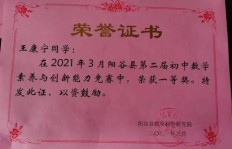 荣誉证书
王康宁同学：
在2021年3月阳谷县第二届初中数学
素养与创新能力竞赛中，荣获一等奖。特
发此证，以资鼓励。